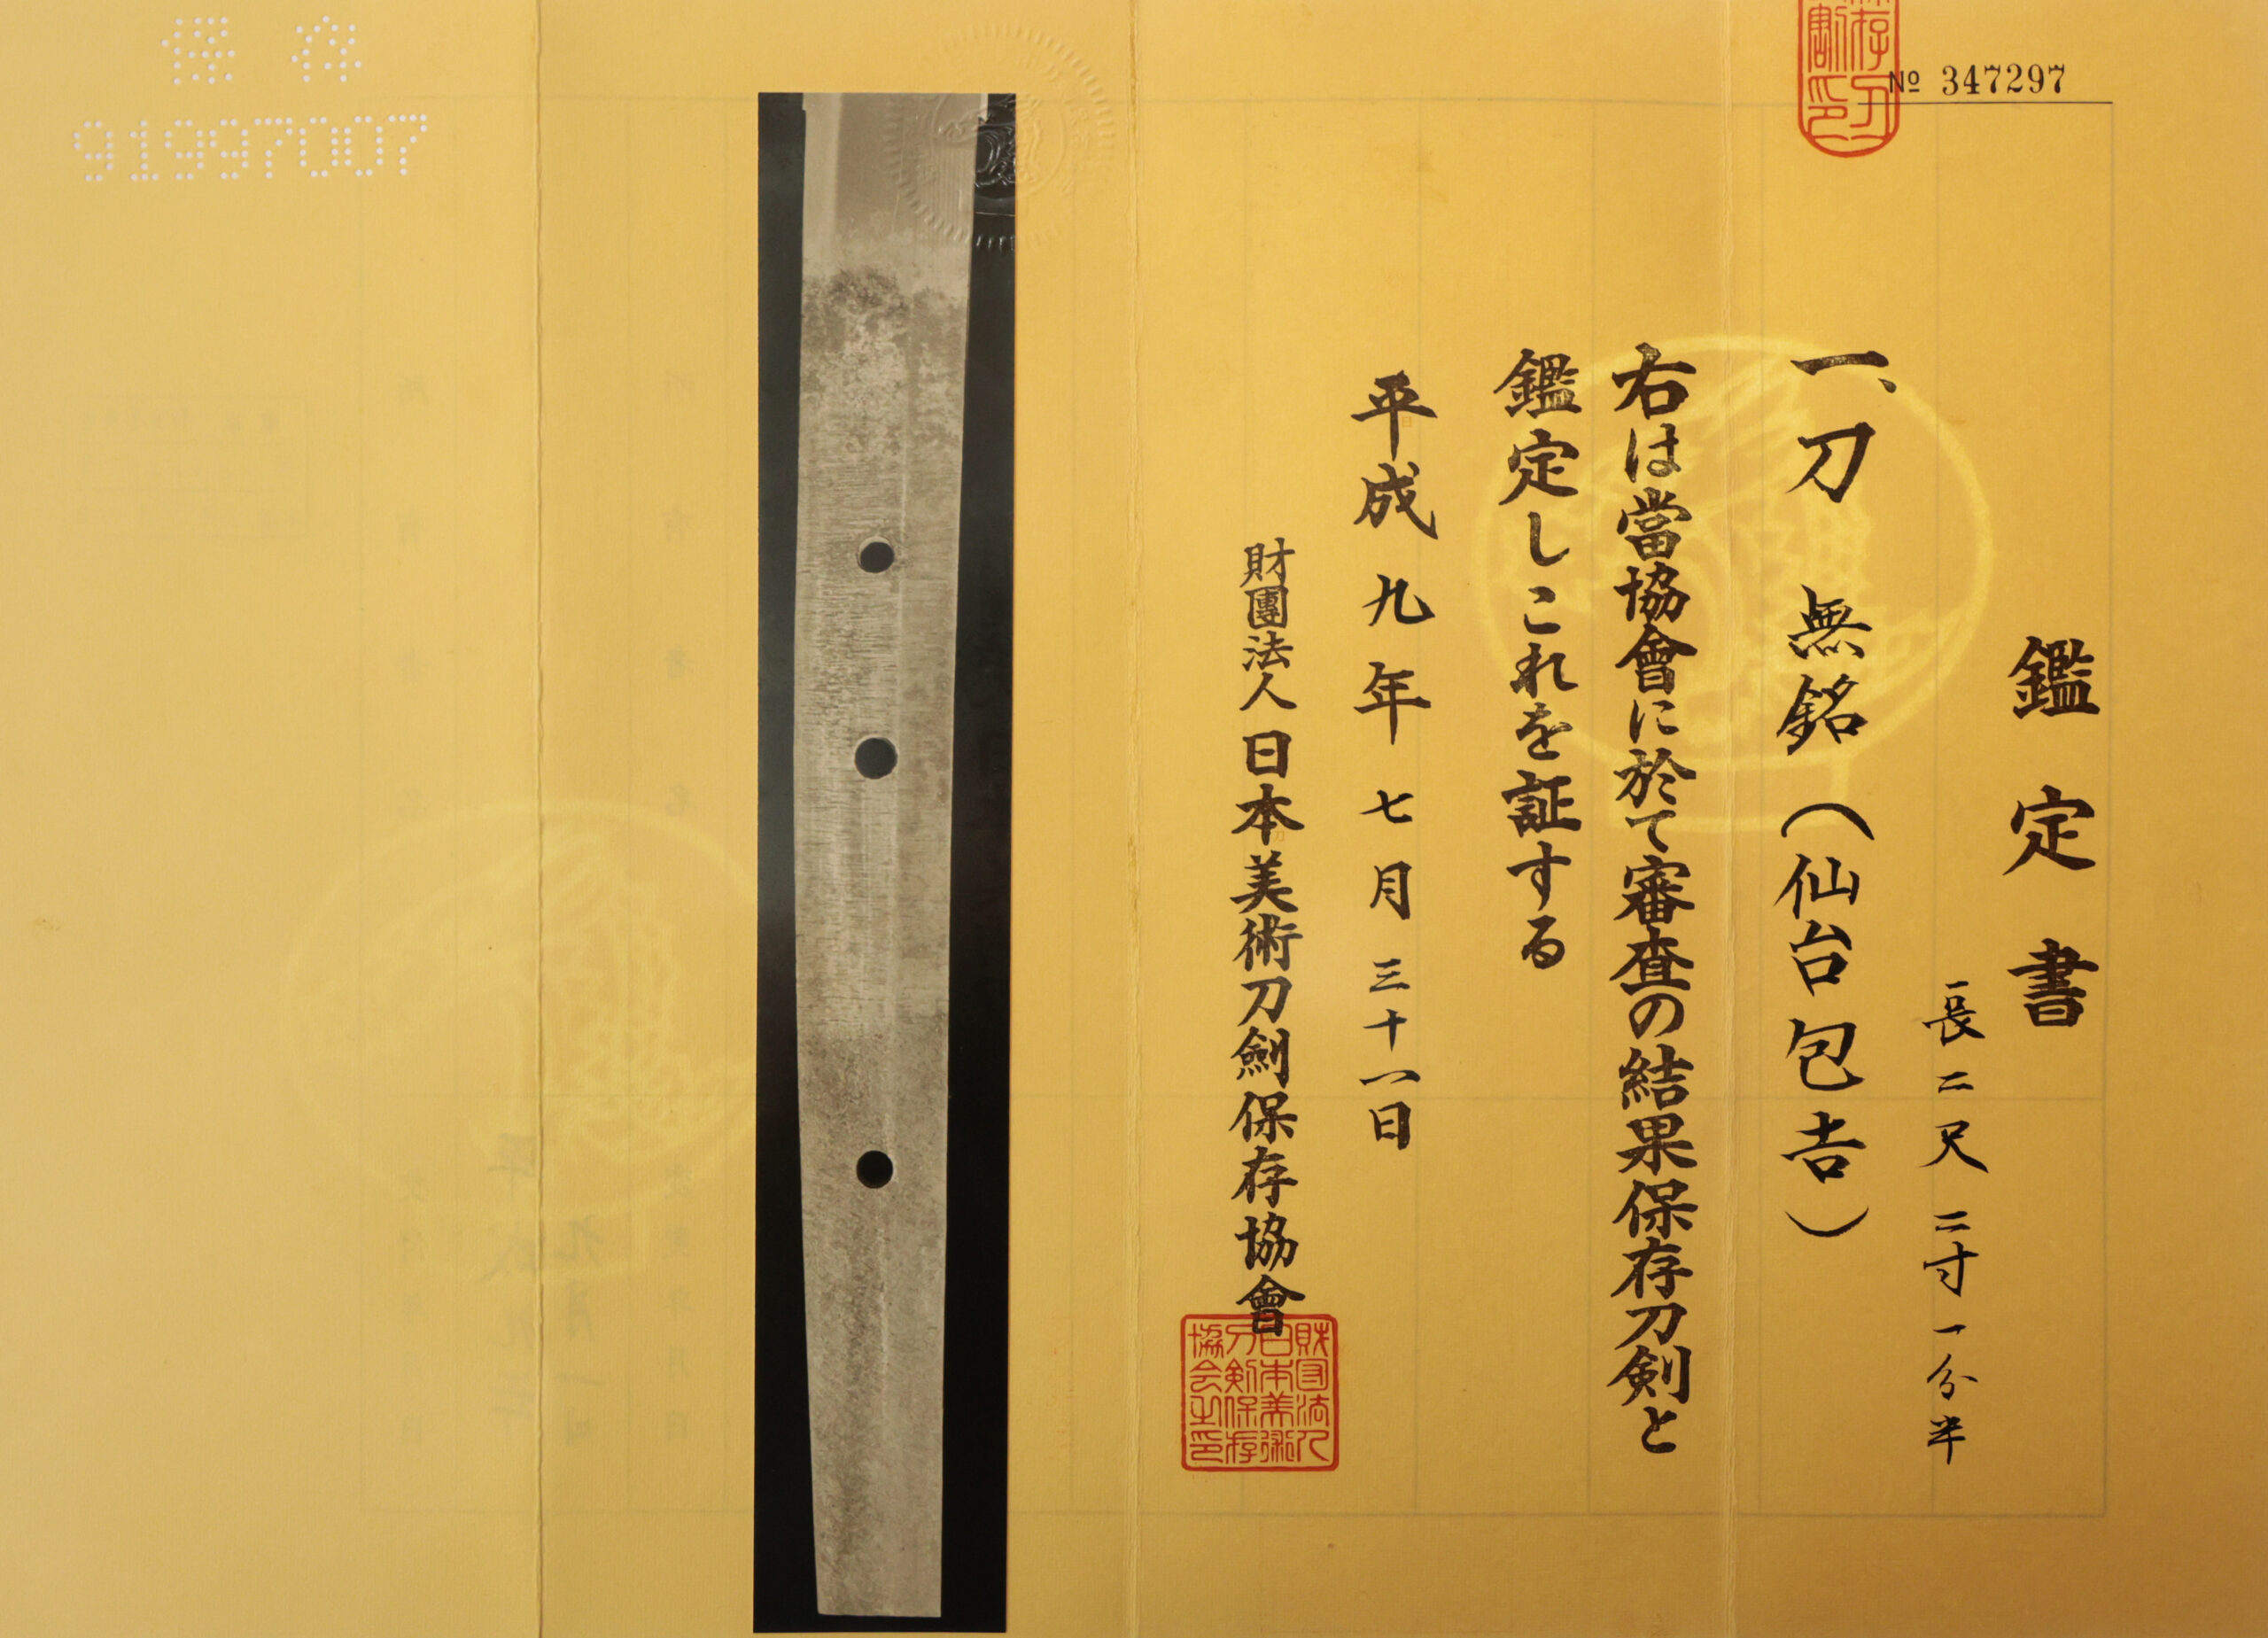 № 347297
鑑定書
長二尺二寸一分半
一、刀 無銘(仙台包吉)
右は當協會に於て審査の結果保存刀剣と
鑑定しこれを証する
平成九年七月三十一日
財團法人日本美術刀劍保存協會
財団法人
日本美術
刀剣保存
協会之印
保存
91997007